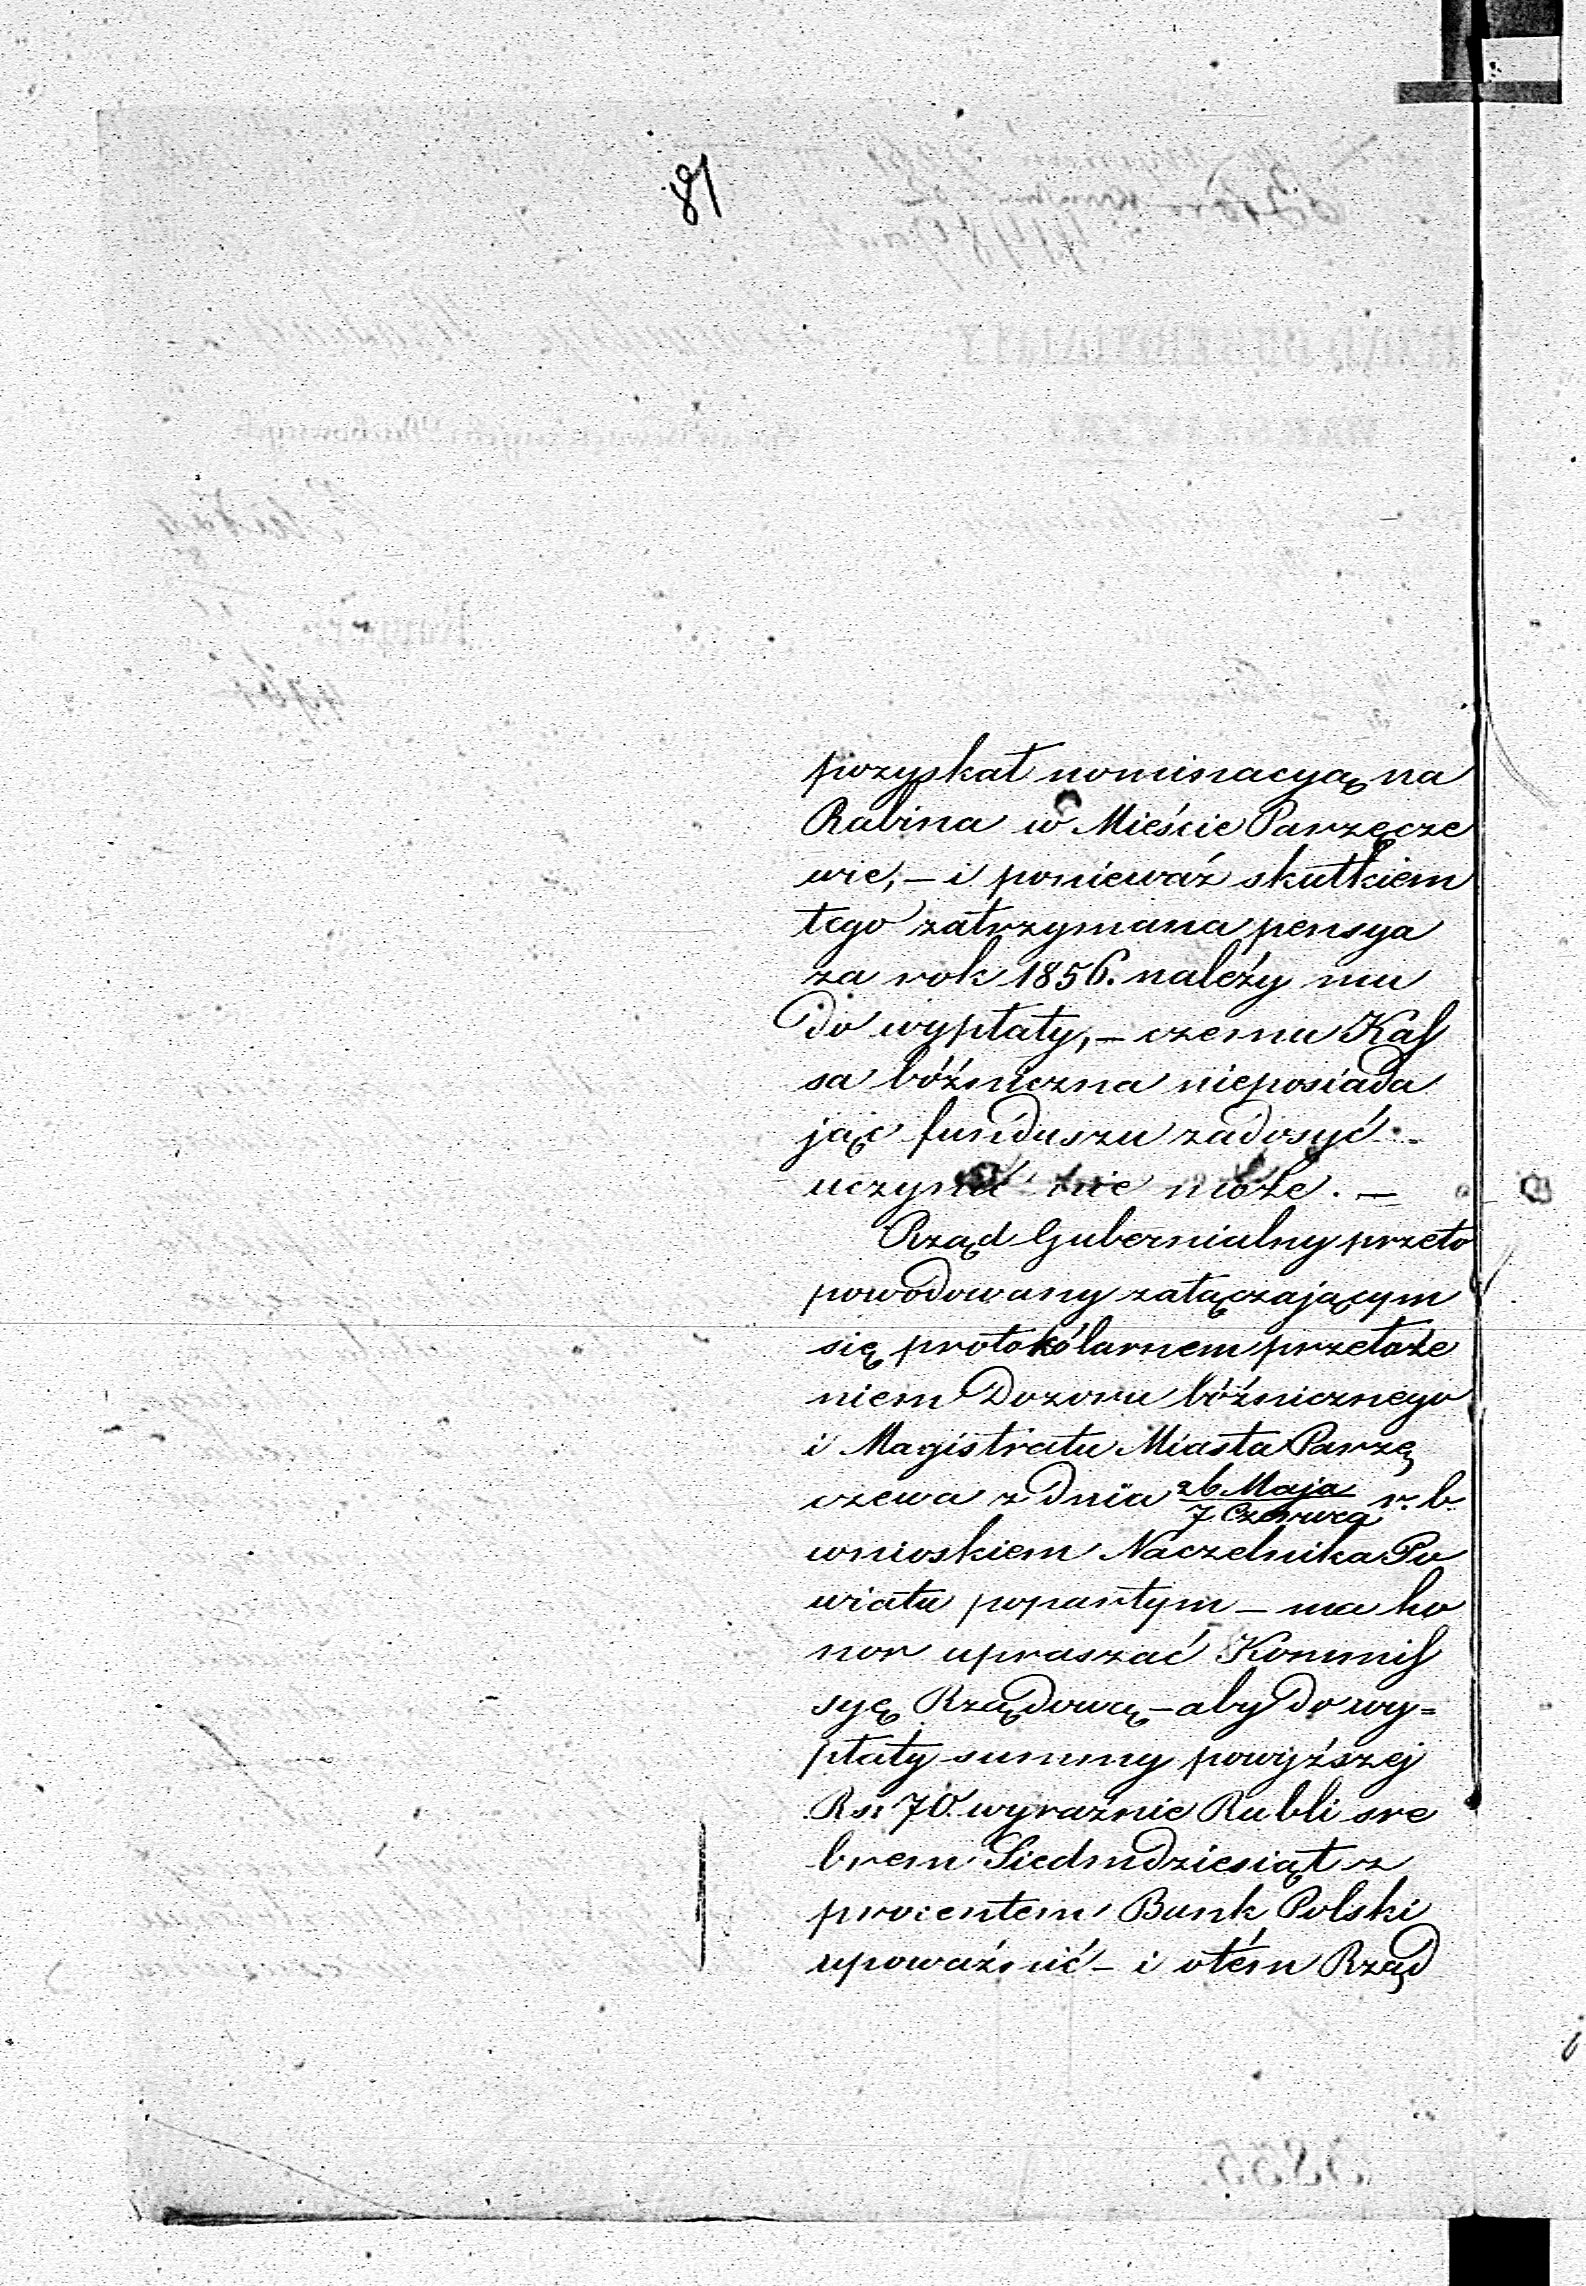 81
pozyskał nominacyą na
Rabina w Mieście Parzęcze
wie, – i ponieważ skutkiem
tego zatrzymana pensya
za rok 1856. należy mu
do wypłaty, – czemu Kas
sa bóżniczna nieposiada
jąc funduszu zadosyć
uczynić nie może. –
Rząd Gubernialny przeto
powodowany załączającym
się protokólarnem przełoże
niem Dozoru bóżnicznego
i Magistratu Miasta Parzę
czewa z dnia 26 Maja / 7 Czerwca r. b.
wnioskiem Naczelnika Po
wiatu popartym – ma ho
nor upraszać Kommis
syę Rządową – aby do wy=
płaty summy powyższej
Rs: 70. wyraźnie Rubli sre
brem Siedmdziesiąt z
procentem Bank Polski
upoważnić – i otém Rząd